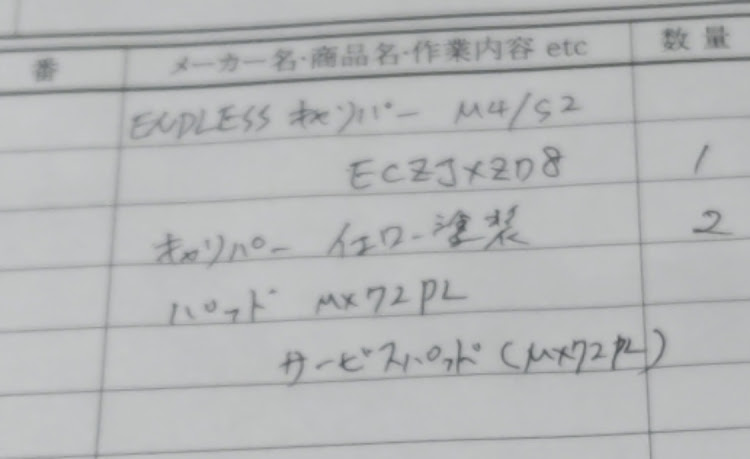 番 メーカー名・商品名・作業内容 etc 数量
ENDLESS キャリパー M4/S2
ECZJXZD8 1
キャリパー イエロー塗装 2
パッド MX72PL
サービスパッド (MX72PL)